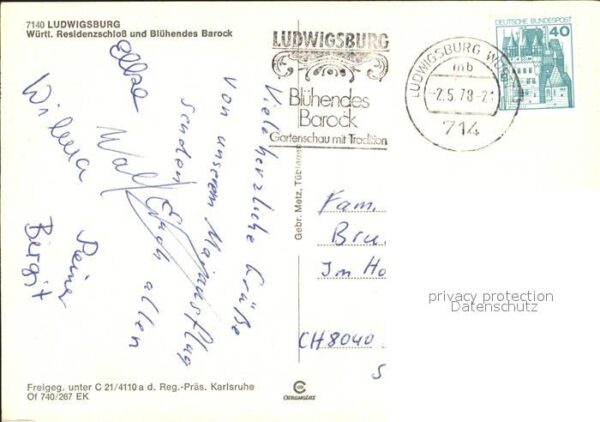 7140 LUDWIGSBURG
Württ. Residenzschloß und Blühendes Barock
LUDWIGSBURG
Blühendes
Barock
Gartenschau mit Tradition
LUDWIGSBURG WÜRTT
mb
-2.5.78-21
714
DEUTSCHE BUNDESPOST
40
Viele herzliche Grüße
von unserem Maiausflug
senden Euch allen
Wolf
Elke
Wilma
Reiner
Birgit
Gebr. Metz, Tübingen
Fam.
Bru
Im Ho
CH8040
S
privacy protection
Datenschutz
Freigeg. unter C 21/4110 a d. Reg.-Präs. Karlsruhe
Of 740/267 EK